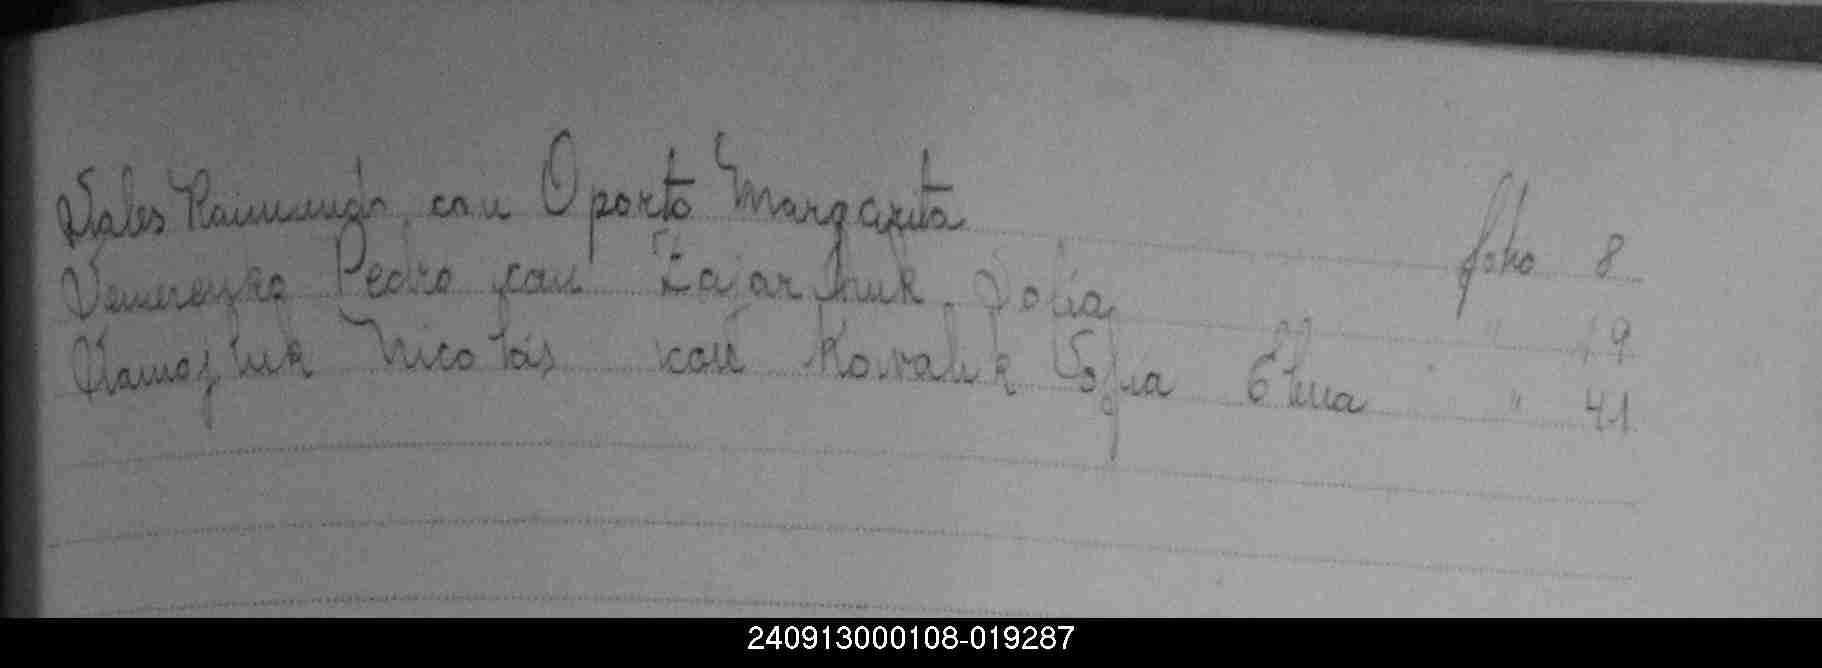 Vales Raimundo con Oporto Margarita folio 8
Pedro con Zajarchuk Sofia " 19
Nicolás con Kovaluk Sofia Elena " 41
240913000108-019287